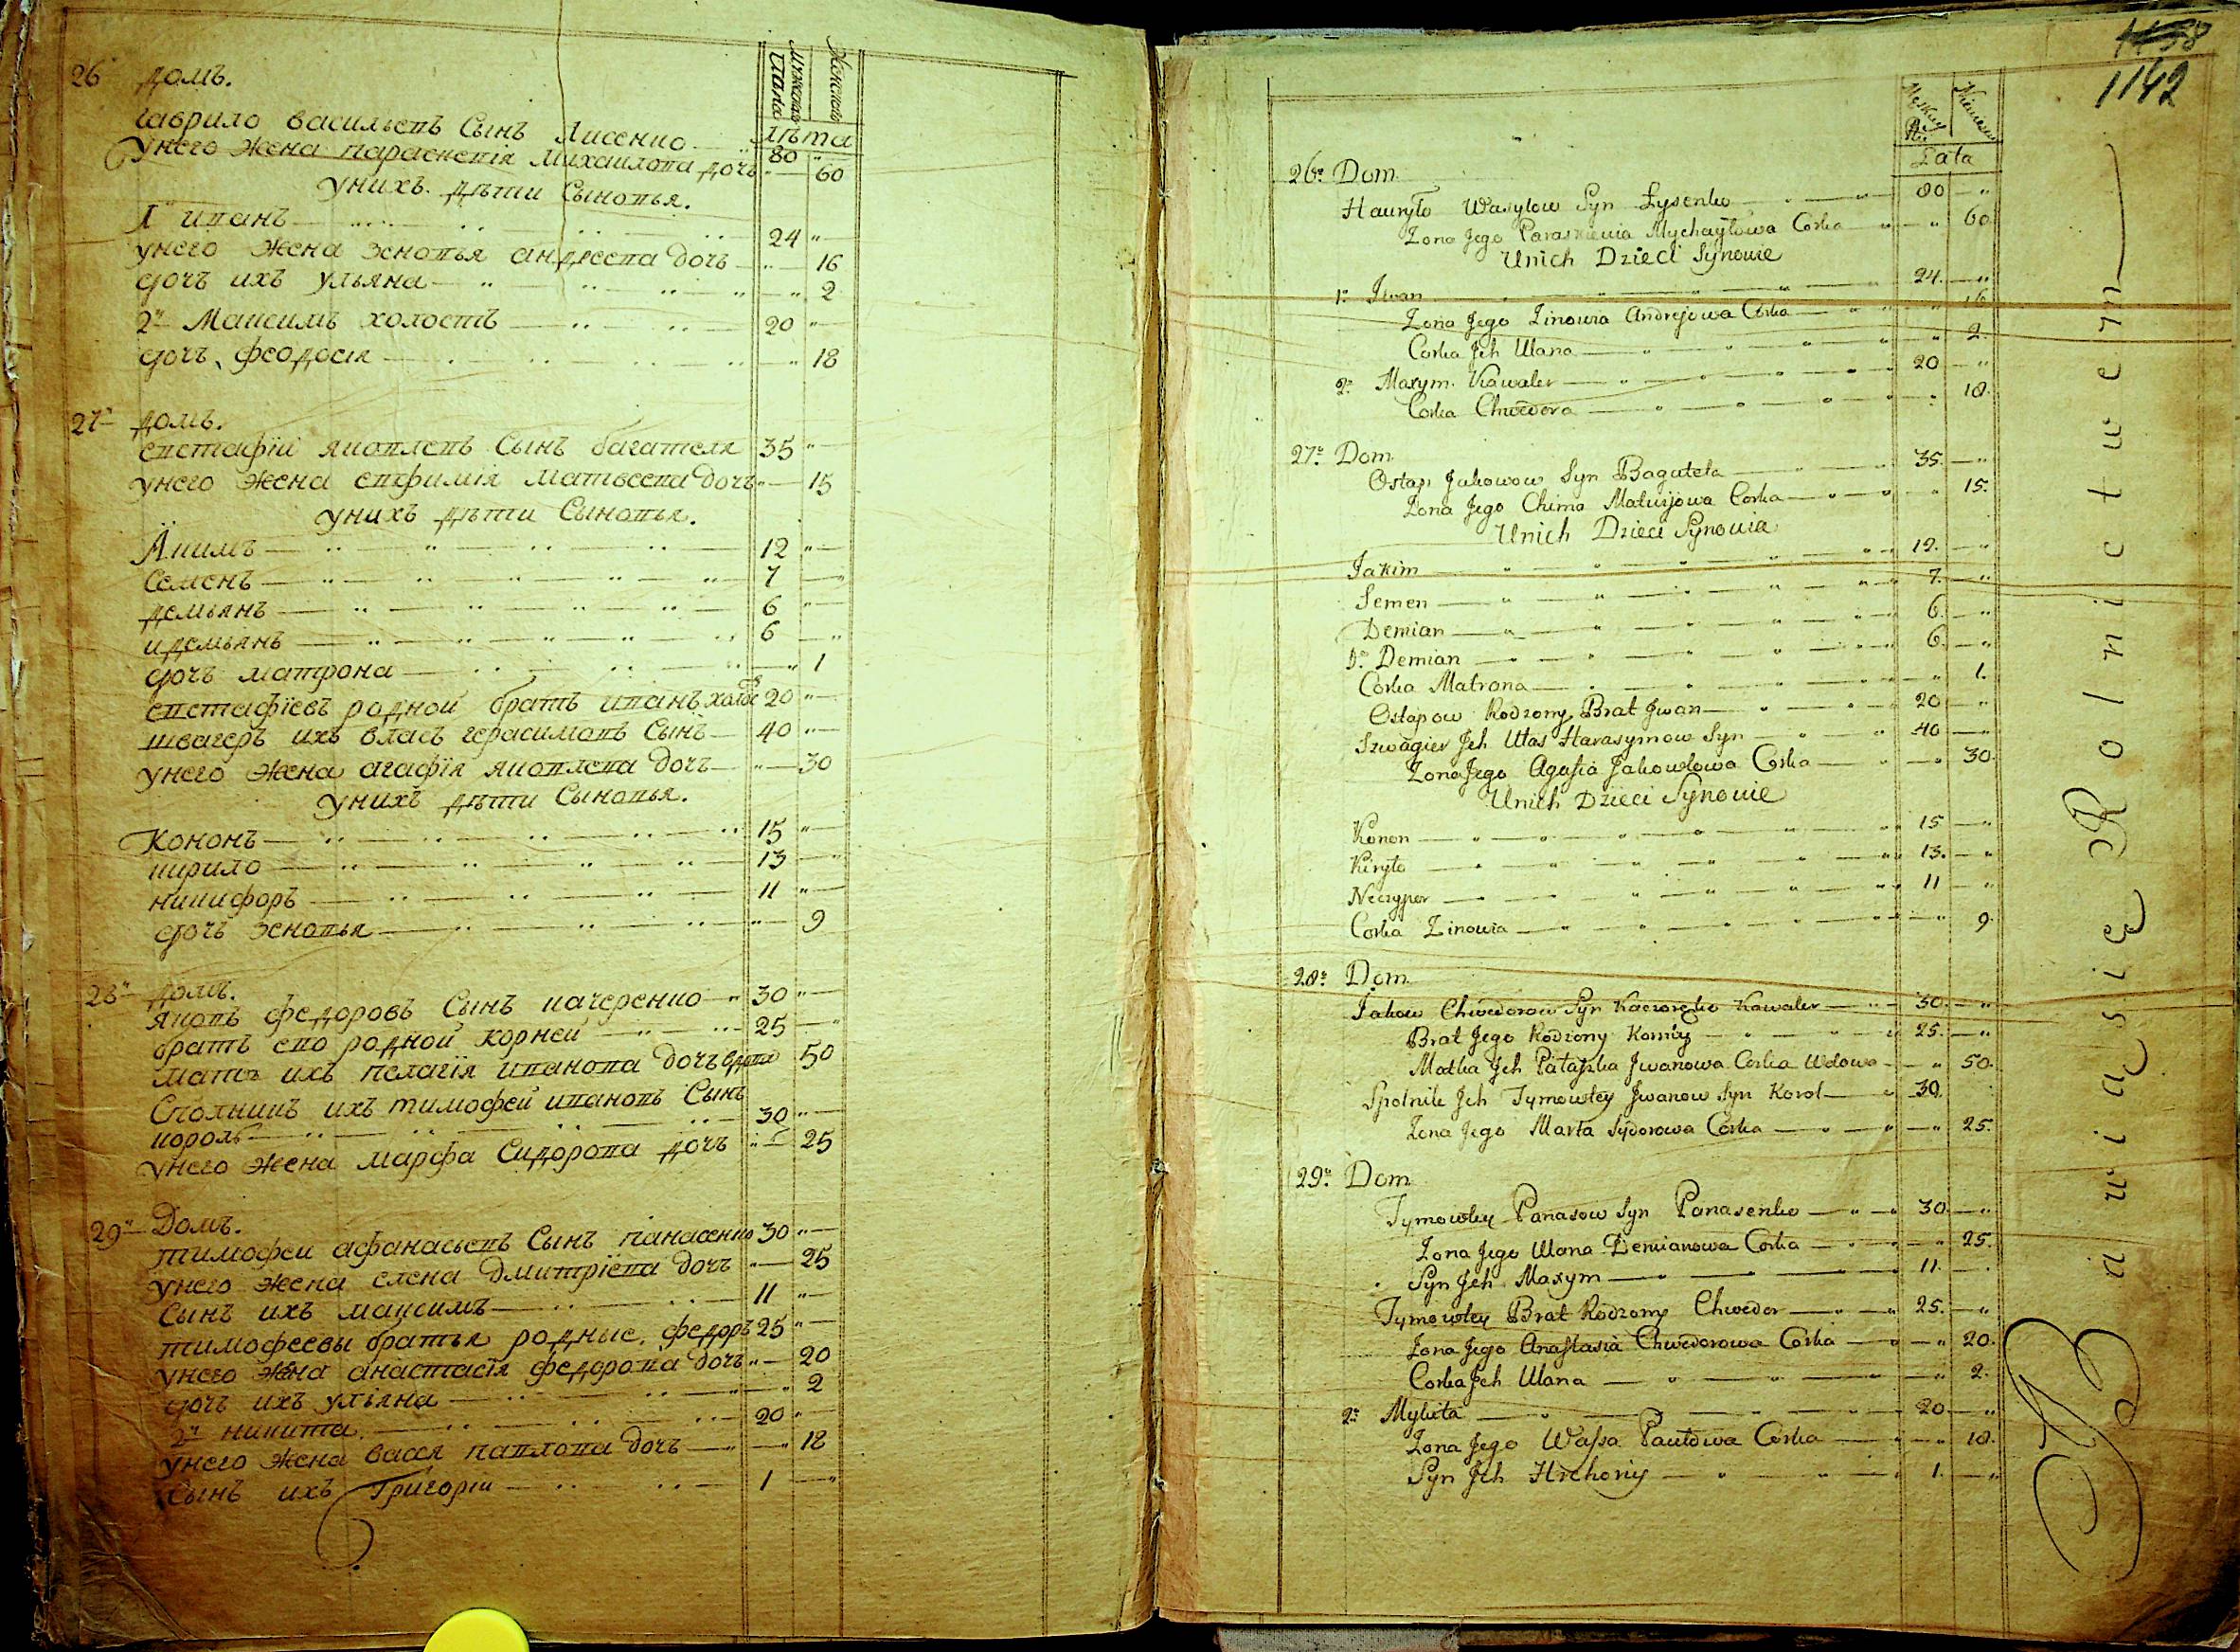 Мужеска
пола
Женска
лѣта
26 домъ.
гаврило васильевъ Сынъ Лисенко 80
унего жена параскевія михаилова дочь 60
унихъ дѣти Сыновья.
1 иванъ 24
унего жена зеновья андреева дочь 16
дочь ихъ ульяна 2
2 Максимъ холостъ 20
дочь феодосія 18
27 домъ.
евстафіи яковлевъ Сынъ багателя 35
унего жена евфимія матвеева дочь 15
унихъ дѣти Сыновья.
Якимъ 12
Семенъ 7
демьянъ 6
идемьянъ 6
дочь матрона 1
евстафіевъ родной братъ иванъ холос 20
швагеръ ихъ власъ герасимовъ Сынъ 40
унего жена агафія яковлева дочь 30
унихъ дѣти Сыновья.
Кононъ 15
кирило 13
никифоръ 11
дочь зеновья 9
28 домъ.
яковъ федоровъ Сынъ качеренко 30
братъ его родной корней 25
мать ихъ пелагія иванова дочь вдова 50
Сполникъ ихъ тимофей ивановъ Сынъ
король 30
унего жена марфа Сидорова дочь 25
29 Домъ.
тимофеи афанасьевъ Сынъ панасенко 30
унего жена елена дмитріева дочь 25
Сынъ ихъ максимъ 11
тимофеевы братья родные. федоръ 25
унего жена анастасія федорова дочь 20
дочь ихъ ульяна 2
2 никита 20
унего жена васся павлова дочь 18
Сынъ ихъ Григоріи 1
1142
Lata
26 Dom
Hauryło Wasylow Syn Łysenko 80
Zona Jego Paraskiewia Mychayłowa Corka 60
Unich Dzieci Synowie
1 Jwan 24
Zona Jego Zinowia Andrejowa Corka 16
Corka Jch Ulana 2
2 Maxym Kawaler 20
Corka Chwedora 18
27 Dom
Ostap Jakowow Syn Bagatela 35
Zona Jego Chima Matwijowa Corka 15
Unich Dzieci Synowie
Jakim 12
Semen 7
Demian 6
D. Demian 6
Corka Matrona 1
Ostapow Rodzony Brat Jwan 20
Szwagier Jch Ułas Harasymow Syn 40
Zona Jego Agafia Jakowlowa Corka 30
Unich Dzieci Synowie
Konon 15
Kiryło 13
Neczypor 11
Corka Zinowia 9
28 Dom
Jakow Chwedorow Syn Kaczorenko Kawaler 30
Brat Jego Rodzony Korniy 25
Matka Jch Patazka Jwanowa Corka Wdowa 50
Spolnik Jch Tymowtey Jwanow Syn Korol 30
Zona Jego Marta Sydorowa Corka 25
29 Dom
Tymowtey Panasow Syn Panasenko 30
Zona Jego Ulana Demianowa Corka 25
Syn Jch Maxym 11
Tymowtey Brat Rodzony Chwedor 25
Zona Jego Anastasia Chwedorowa Corka 20
Corka Jch Ulana 2
2 Mykita 20
Zona Jego Wassa Pawłowa Corka 18
Syn Jch Hrehoriy 1